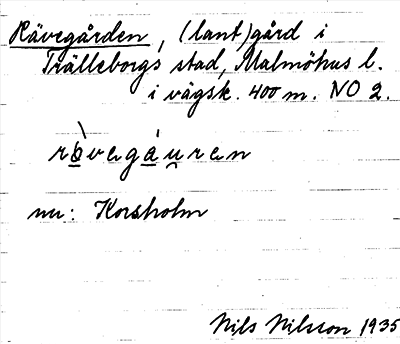 Rävegården, (lant)gård i
Trälleborgs stad, Malmöhus l.
i vägsk. 400 m. NO 2.
rὸvegáu̯ren
nu: Korsholm
Nils Nilsson 1935